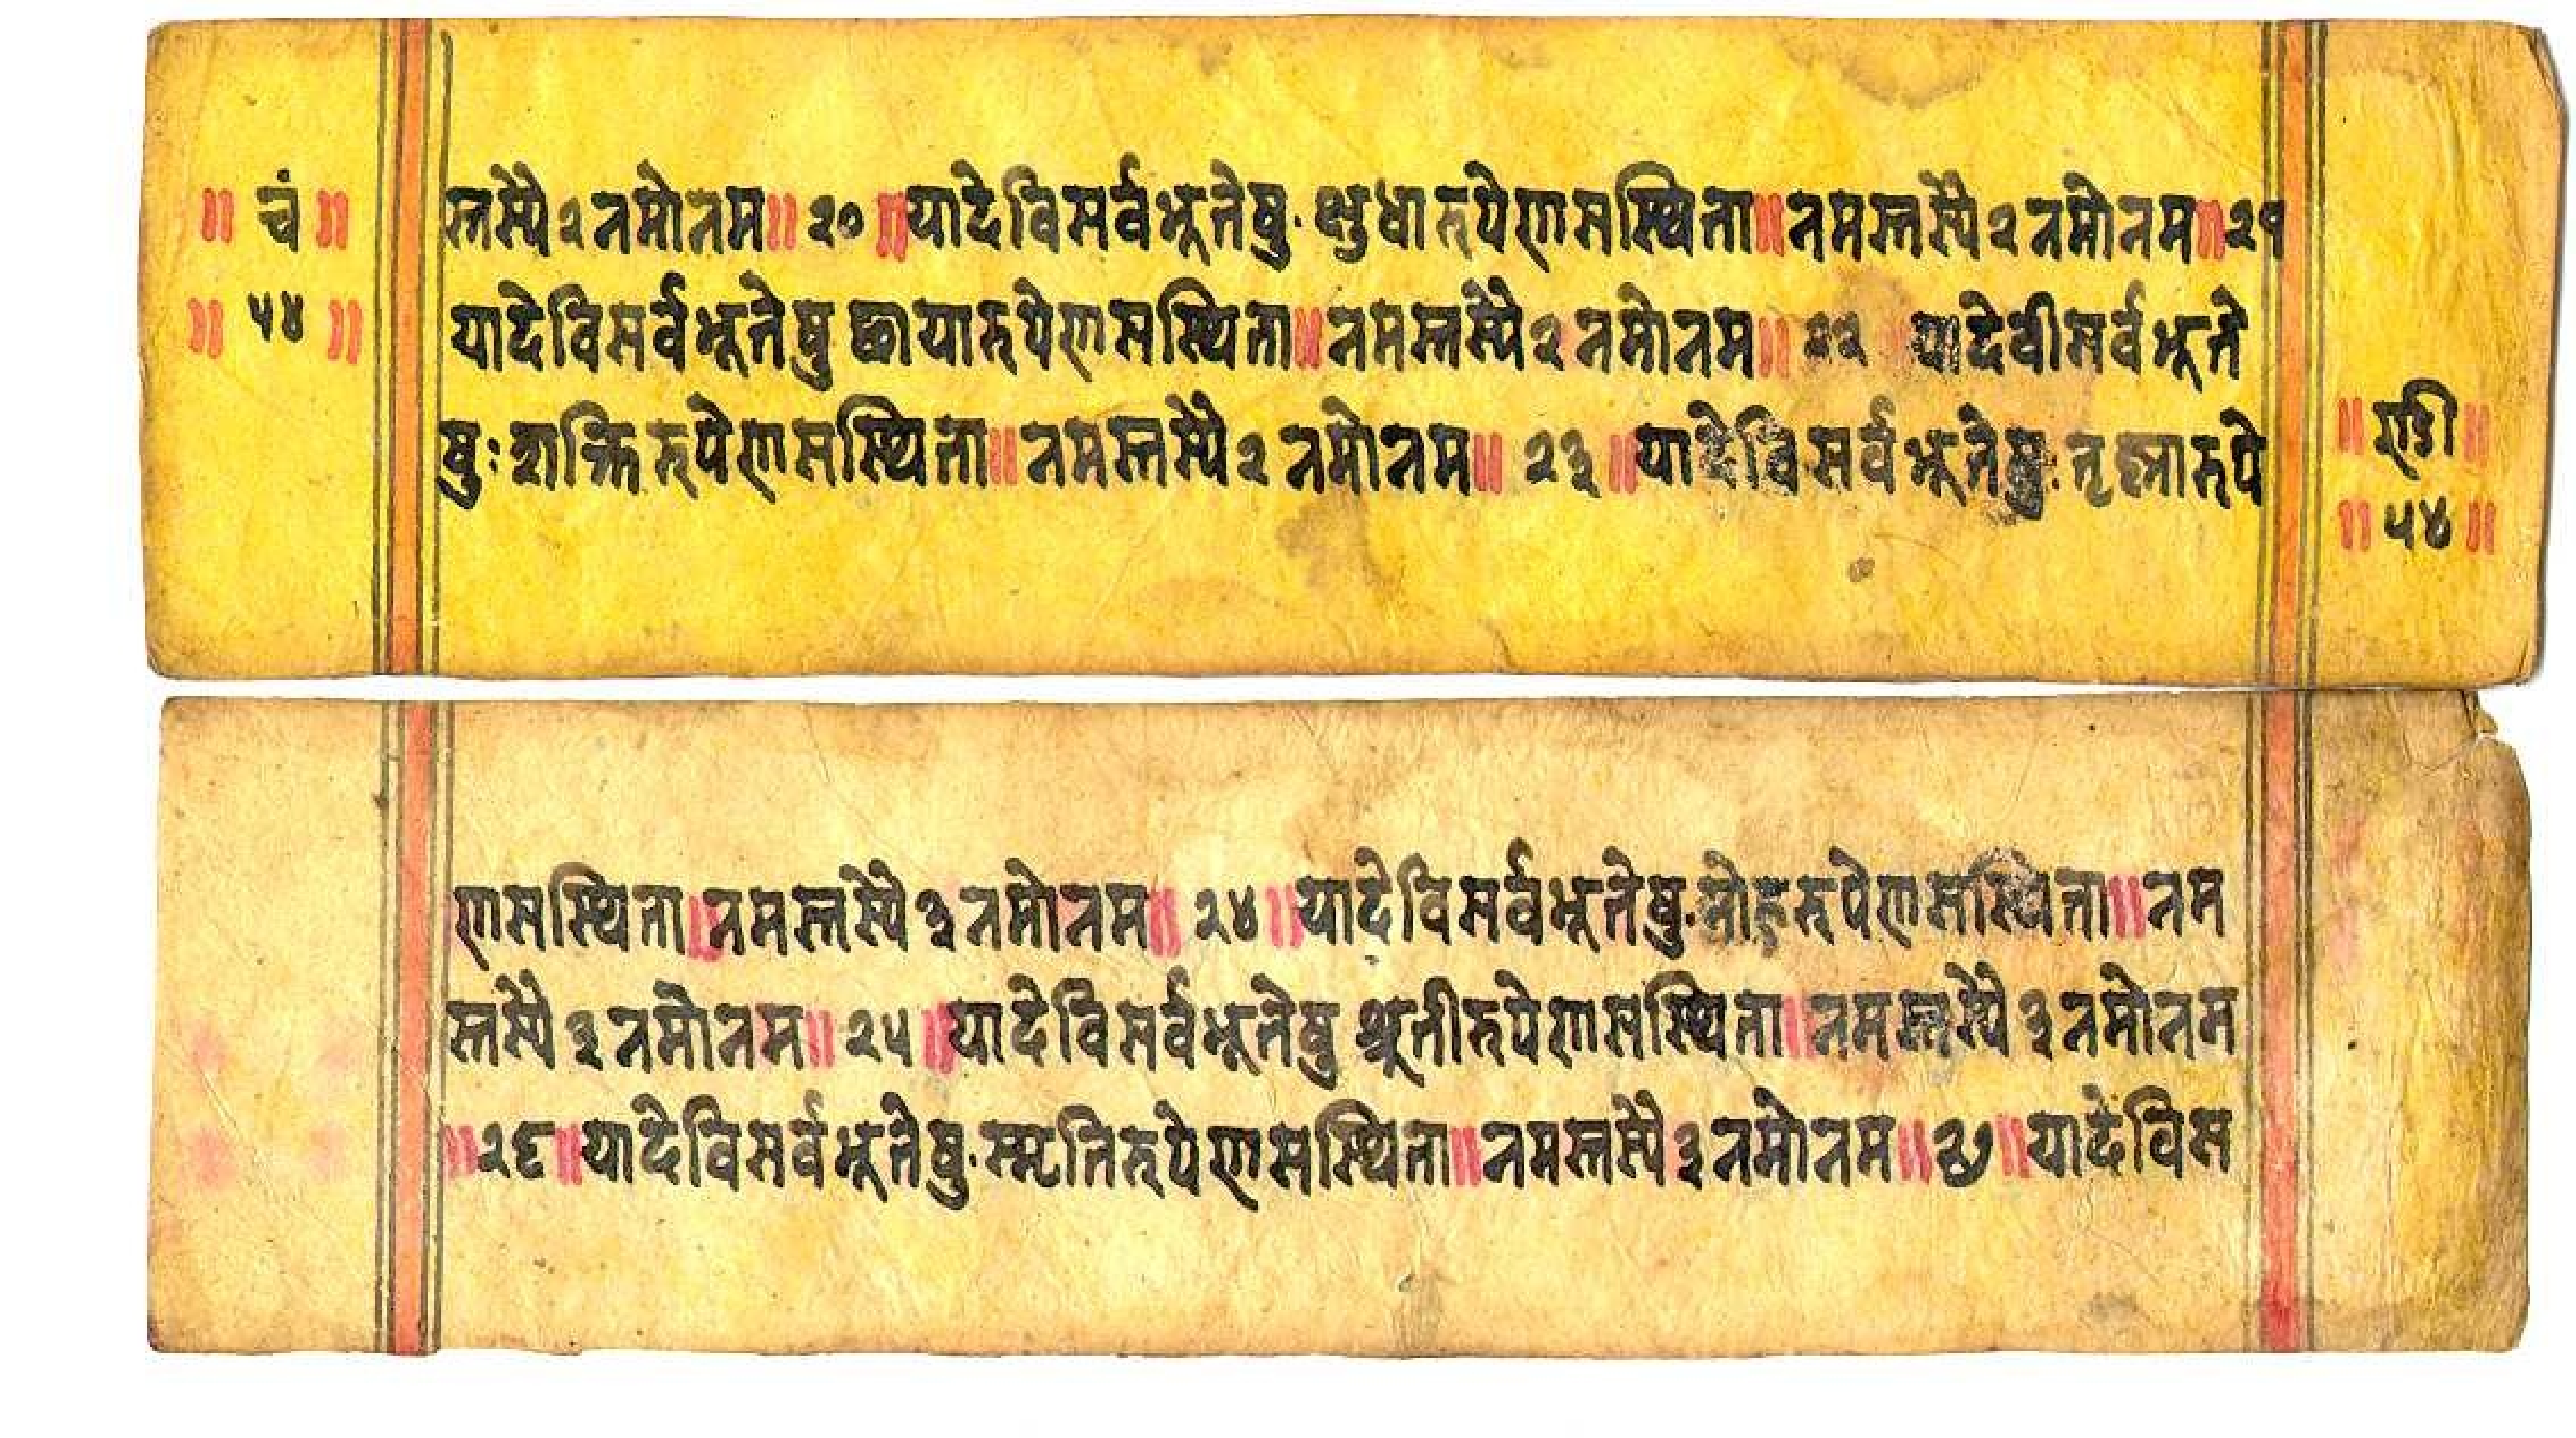 ॥ चं ॥
॥ ५४ ॥
स्तस्यै२नमोनम॥२०॥यादेविसर्वभूतेषु. क्षुधारुपेणसस्थिता॥नमस्तस्यै२नमोनम॥२१
यादेविसर्वभूतेषु छायारुपेणसस्थिता॥नमस्तस्यै२नमोनम॥ २२ यादेवीसर्वभूते
षुः शक्तिरुपेणसस्थिता॥नमस्तस्यै२नमोनम॥ २३॥यादेविसर्वभूतेषु: तृह्नारुपे
॥ण्डी॥
॥५४॥
णसस्थिता॥नमस्तस्यै३नमोनम॥ २४॥यादेविसर्वभूतेषु.मोहरुपेणसस्थिता॥नम
स्तस्यै३नमोनम॥२५॥यादेविसर्वभूतेषु श्रूतीरुपेणसस्थिता॥नमस्तस्यै३नमोनम
॥२६॥यादेविसर्वभूतेषु.स्मृतिरुपेणसस्थिता॥नमस्तस्यै३नमोनम॥२७॥यादेविस